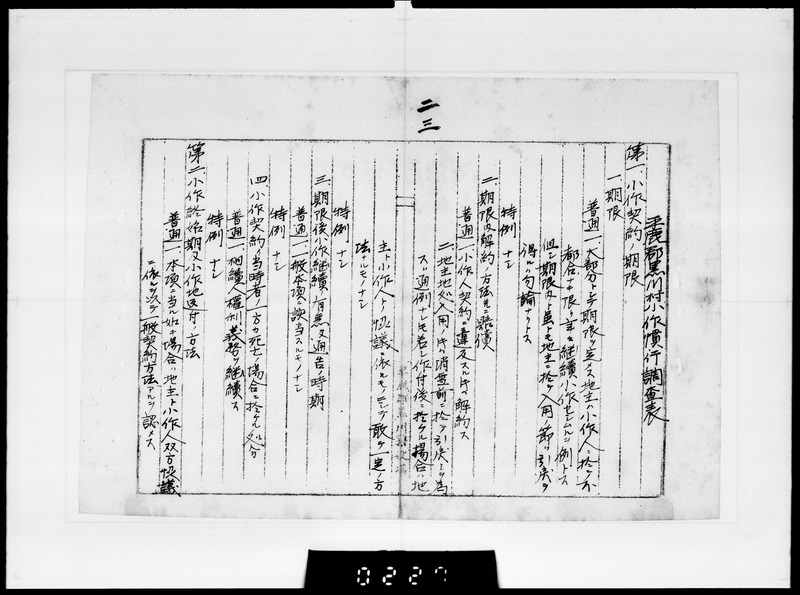 二三
玉鹿郡黒川村小作慣行調査表
第一、小作契約ノ期限
一、期限
普通 一、大部分ト云フ期限ヲ定メス地主ハ小作人ニ於テ不
都合ナキ限リ年々継続小作セシムルノ例トス
但シ期限内ト虽トモ地主ニ於テ入用ノ節ハ引戻ヲ
得ルハ勿論ナリトス
特例 ナシ
二、期限内解約ノ方法並ニ賠償
普通 一、小作人契約ニ違反スルトキハ解約ス
二、地主地処入用ノトキハ消盆前ニ於テ引戻シヲ為
スハ通例ナレトモ若シ作付後ニ於ケル場合ハ地
主ト小作人トノ協議ニ依ルモノニシテ敢テ一定ノ方
法ナルモノナシ
特例 ナシ
三、期限後小作継続ノ有無及通告ノ時期
普通 一、一般本項ニ該当スルモノナシ
特例 ナシ
四、小作契約ノ当時者ノ一方カ死亡ノ場合ニ於ケル処分
普通 一、相続人権利義務ヲ継続ス
特例 ナシ
第二、小作終始期及小作地返付ノ方法
普通 一、本項ニ当ル始キ場合ハ地主ト小作人双方協議
ニ依ルヲ以テ一般契約方法アルヲ認メス
0227